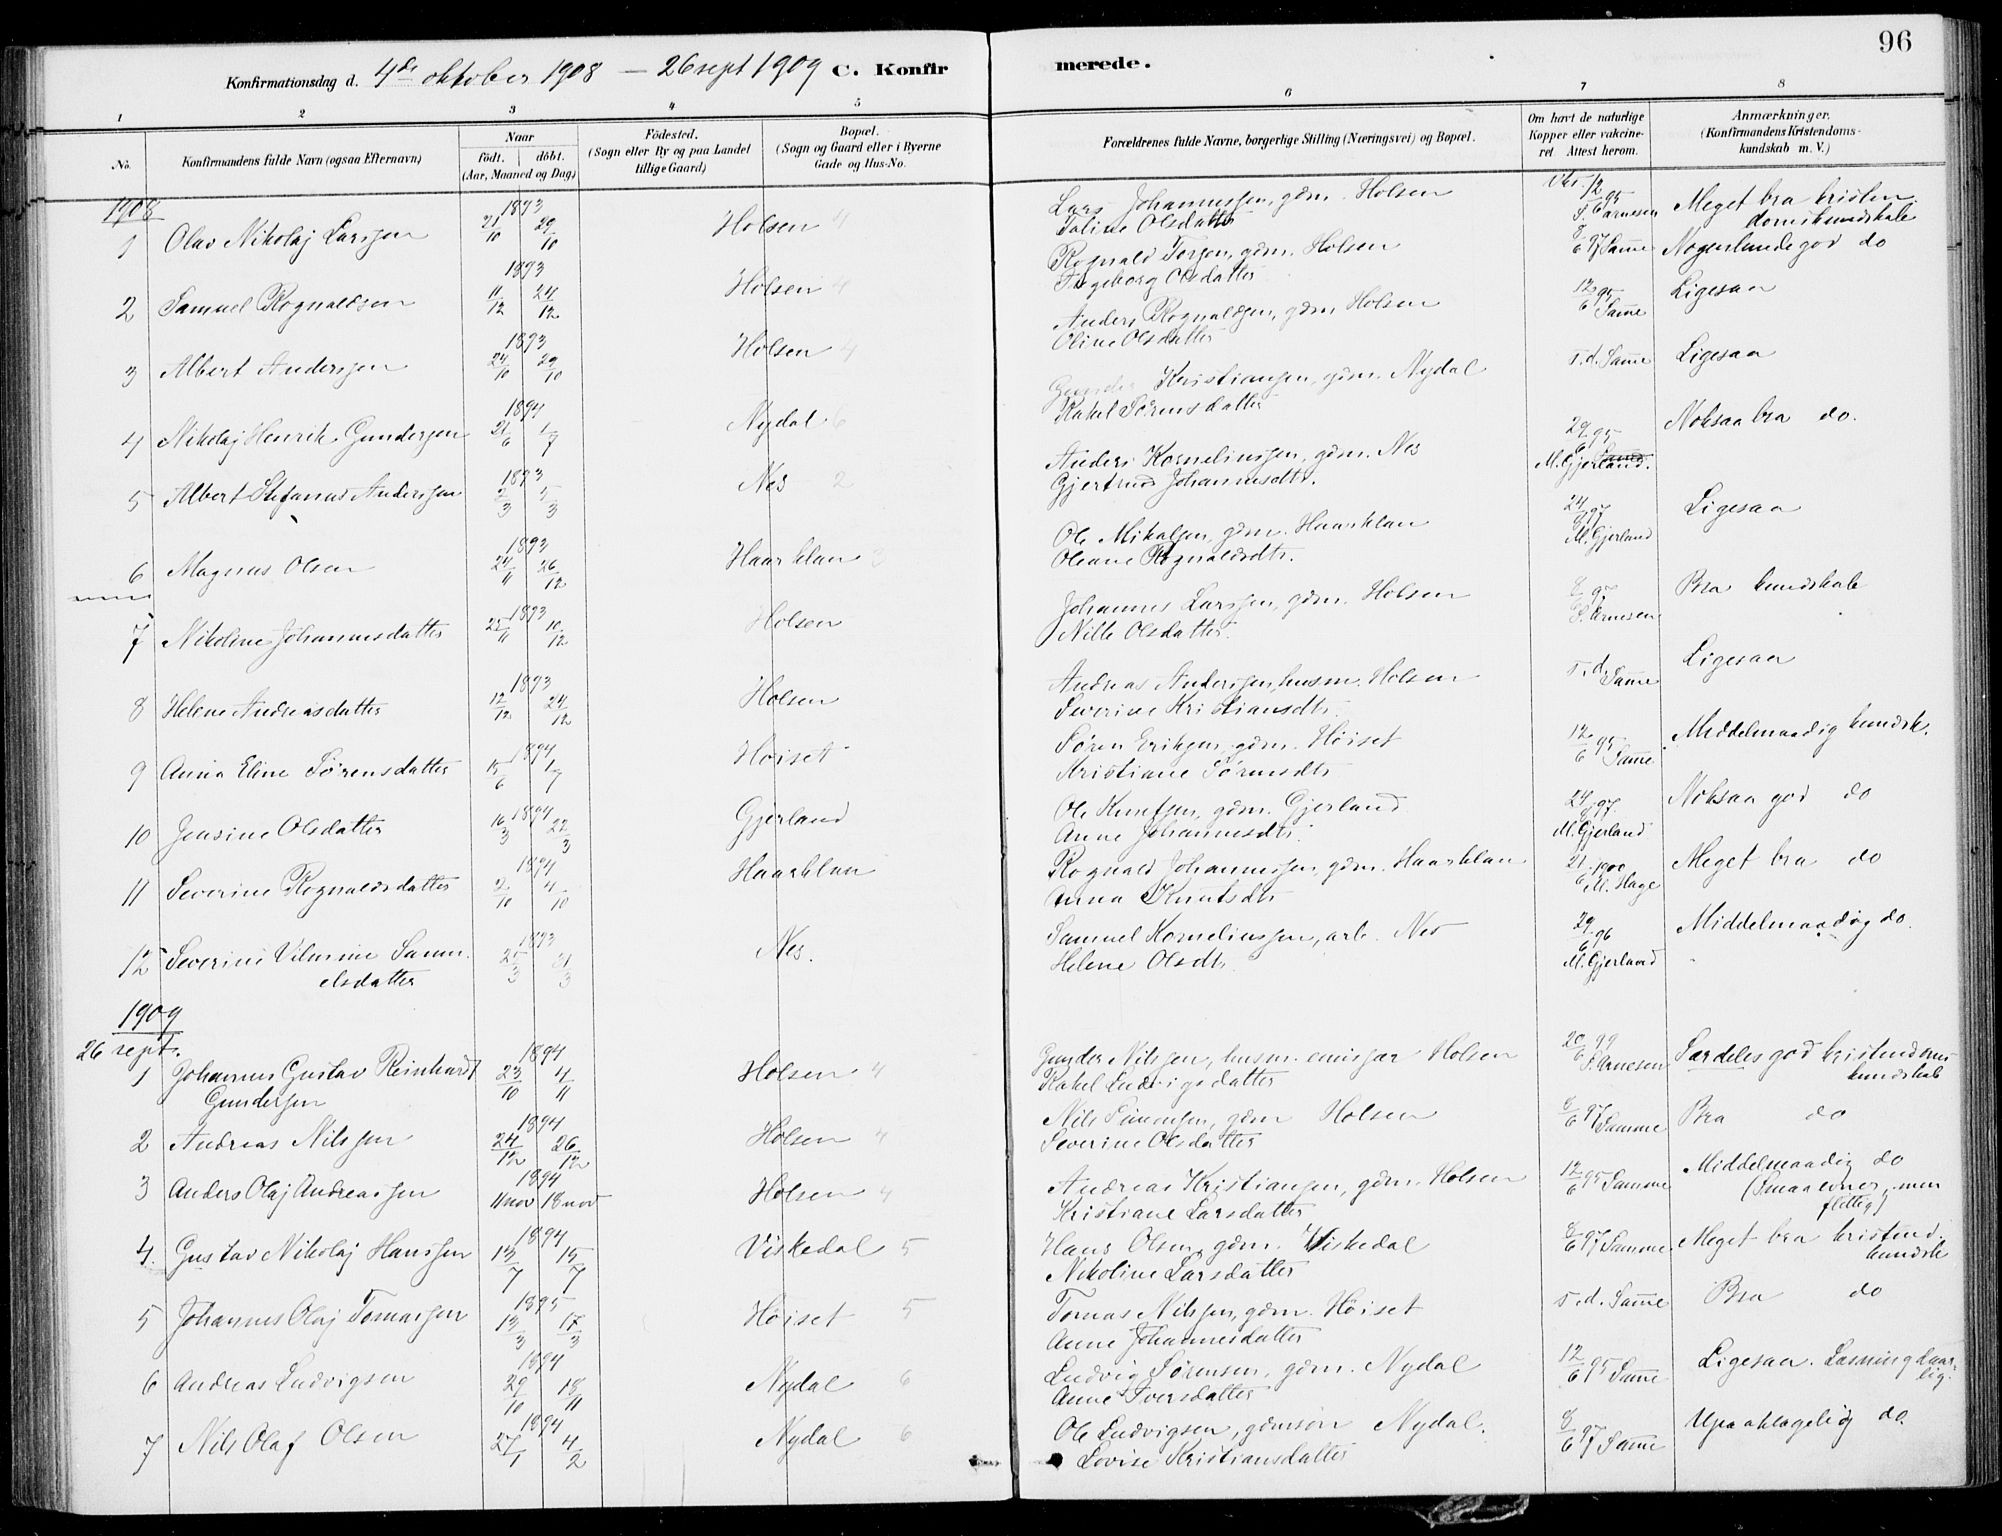 96
Konfirmationsdag d. 4de oktober 1908 — 26 sept 1909 C. Konfirmerede.
1 2 3 4 5 6 7 8
No.
Konfirmandens fulde Navn (ogsaa Efternavn)
Naar
födt. döbt.
(Aar, Maaned og Dag)
Födested.
(Sogn eller By og paa Landet
tillige Gaard)
Bopæl.
(Sogn og Gaard eller i Byerne
Gade og Hus-No.
Forældrenes fulde Navne, borgerlige Stilling (Næringsvei) og Bopæl.
Om havt de naturlige
Kopper eller vakcine-
ret. Attest herom.
Anmærkninger.
(Konfirmandens Kristendoms-
kundskab m. V.)
1908
1 Olav Nikolaj Larssen 1893 21/10 29/10 Holsen 4 Lars Johannessen, gdm. Holsen
Taline Olsdatter 12/6 95 S. Arnesen Meget bra kristen
domskundskab
2 Samuel Rognaldsen 1893 11/12 24/12 Holsen 4 Rognald Torsen, gdm. Holsen
Ingeborg Olsdatter 8/6 97 Samme Nogenlunde god do
3 Albert Anderssen 1893 24/10 29/10 Holsen 4 Anders Rognaldsen, gdm. Holsen
Oline Olsdatter 12/6 95 Samme Ligesaa
4 Nikolaj Henrik Gunderssen 1894 21/6 1/7 Nydal 6 Gunder Kristiansen, gdm. Nydal
Rakel Sørensdatter s. d. Samme Ligesaa
5 Albert Stefanus Anderssen 1893 2/3 5/3 Nes 2 Anders Korneliussen, gdm. Nes
Gjertrud Johannesdtr. 29/6 95 M. Gjerland. Noksaa bra do.
6 Magnus Olsen 1893 24/11 26/12 Haarklau 3 Ole Mikalsen, gdm. Haarklau
Oleane Rognaldsdtr. 24/6 97 M. Gjerland Ligesaa
7 Nikoline Johannesdatter 1893 25/11 10/12 Holsen Johannes Larssen, gdm. Holsen
Nille Olsdatter. 8/6 97 S. Arnesen Bra kundskab
8 Helene Andreasdatter 1893 12/12 24/12 Holsen Andreas Anderssen, husm. Holsen
Severine Kristiansdtr. s. d. Samme Ligesaa
9 Anna Eline Sørensdatter 1894 15/6 1/7 Høiset Søren Eriksen, gdm. Høiset
Kristiane Sørensdtr 12/6 95 Samme Middelmaadig kundsk.
10 Jensine Olsdatter 1894 16/3 22/3 Gjerland Ole Knutsen, gdm. Gjerland
Anne Johannesdtr. 24/6 97 M. Gjerland Noksaa god do
11 Severine Rognaldsdatter 1894 2/10 4/10 Haarklau Rognald Johannessen, gdm. Haarklau
Anna Knutsdtr 21/6 1900 M. Hage Meget bra do
12 Severine Vilmine Samu-
elsdatter 1893 25/3 31/3 Nes. Samuel Korneliussen, arb. Nes
Helene Olsdtr. 29/6 96 M. Gjerland Middelmaadig do.
1909
26 sept.
1 Johannes Gustav Reinhardt
Gundersen 1894 23/10 4/11 Holsen 4 Gunder Nilssen, husm. emissær Holsen
Rakel Ludvigsdatter 20/6 99 S. Arnesen Særdeles god kristendoms
kundskab
2 Andreas Nilssen 1894 24/12 26/12 Holsen 4 Nils Simonsen, gdm Holsen
Severine Olsdatter 8/6 97 Samme Bra do
3 Anders Olaj Andreassen 1894 11 nov 18 nov Holsen 4 Andreas Kristiansen, gdm. Holsen
Kristiane Larsdatter 12/6 95 Samme Middelmaadig do
(Smaa evner, men
flittig)
4. Gustav Nikolaj Hanssen 1894 13/7 15/7 Viskedal 5 Hans Olsen, gdm. Viskedal
Nikoline Larsdatter 8/6 97 Samme Meget bra kristend.
kundsk
5 Johannes Olaj Tomassen 1895 13/3 17/3 Høiset 5 Tomas Nilssen, gdm. Høiset
Anne Johannesdatter s. d. Samme Bra do
6 Andreas Ludvigsen 1894 29/10 18/11 Nydal 6 Ludvig Sørensen, gdm. Nydal
Anne Iversdatter 12/6 95 Samme Ligesaa. Læsning daar-
lig.
7 Nils Olaf Olsen 1894 27/1 4/2 Nydal 6 Ole Ludvigsen, gdmsøn Nydal.
Lovise Kristiansdatter 8/6 97 Samme Upaaklagelig do.